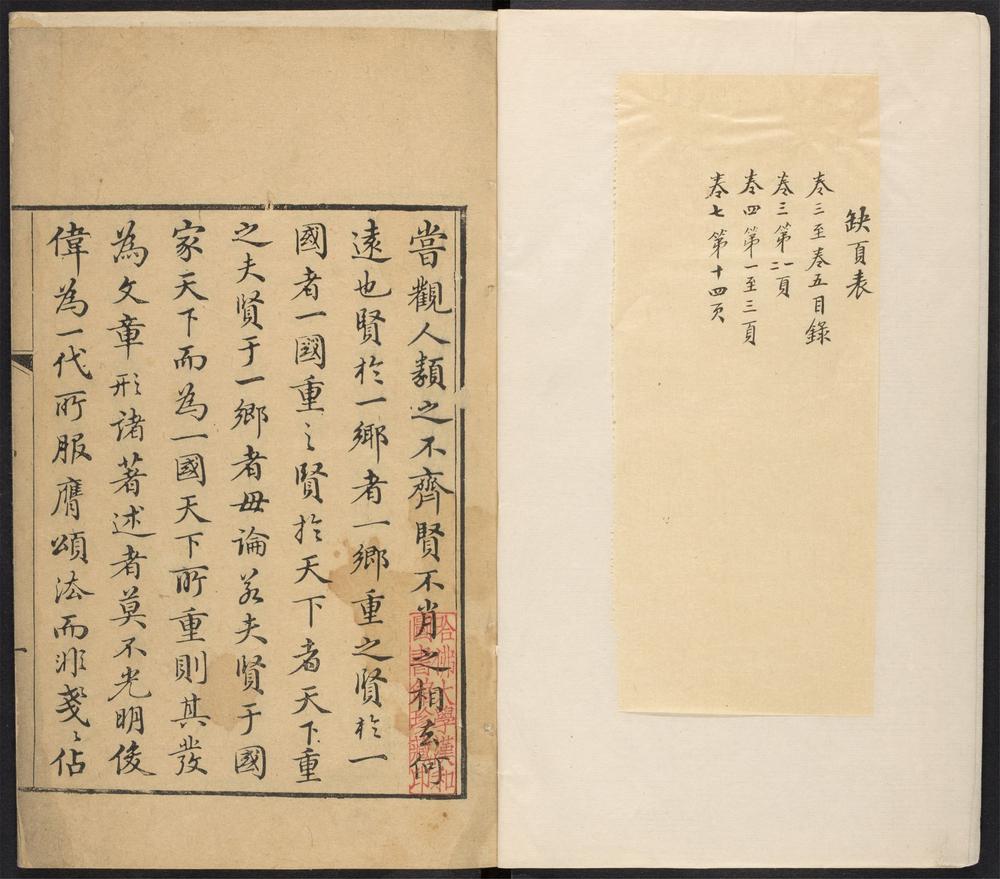 缺頁表
卷三至卷五目錄
卷三第一二頁
卷四第一至三頁
卷七第十四页
嘗觀人類之不齊賢不肖之相去何
遠也賢於一鄉者一鄉重之賢於一
國者一國重〻賢於天下者天下重
之夫賢于一鄉者毋論若夫賢于國
家天下而為一國天下所重則其發
為文章形諸著述者莫不光明俊
偉為一代所服膺頌法而非戔〻佔
哈佛大學漢和
圖書館珍藏印